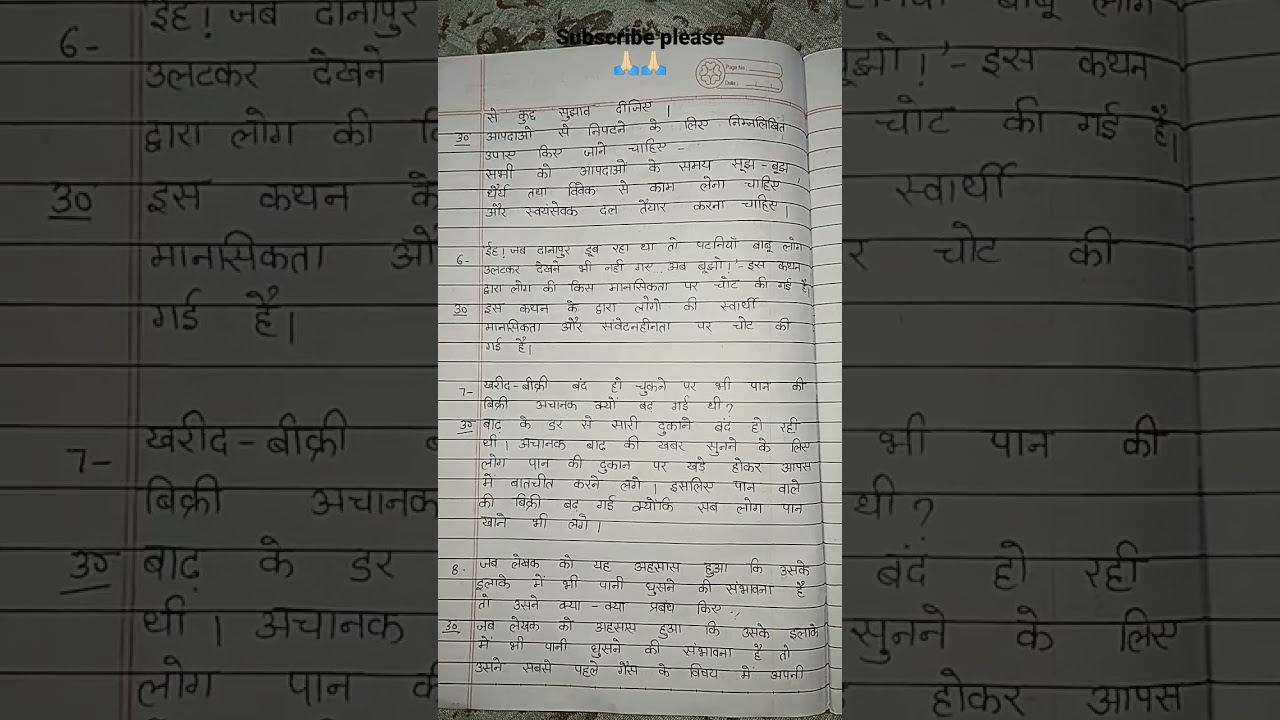 Subscribe please
🙏🏻🙏🏻
Page No.
Date
से कुछ सुझाव दीजिए ।
उ० आपदाओं से निपटने के लिए निम्नलिखित
उपाए किए जाने चाहिए -
सभी को आपदाओं के समय सूझ-बूझ
धैर्य तथा विवेक से काम लेना चाहिए
और स्वयंसेवक दल तैयार करना चाहिए।
6- ईह! जब दानापुर डूब रहा था तो पटनियाँ बाबू लोग
उलटकर देखने भी नही गए...अब बूझो!'-इस कथन
द्वारा लोग की किस मानसिकता पर चोट की गई है।
उ० इस कथन के द्वारा लोगो की स्वार्थी
मानसिकता और संवेदनहीनता पर चोट की
गई है।
7- खरीद-बीक्री बंद हो चुकने पर भी पान की
बिक्री अचानक क्यों बढ़ गई थी?
उ० बाढ़ के डर से सारी दुकाने बंद हो रही
थी । अचानक बाढ़ की खबर सुनने के लिए
लोग पान की दुकान पर खड़े होकर आपस
में बातचीत करने लगे । इसलिए पान वाले
की बिक्री बढ़ गई क्योंकि सब लोग पान
खाने भी लगे ।
8. जब लेखक को यह अहसास हुआ कि उसके
इलाके में भी पानी घुसने की संभावना है
तो उसने क्या - क्या प्रबंध किए ?
उ० जब लेखक को अहसास हुआ कि उसके इलाके
में भी पानी घुसने की संभावना है तो
उसने सबसे पहले गैस के विषय में अपनी